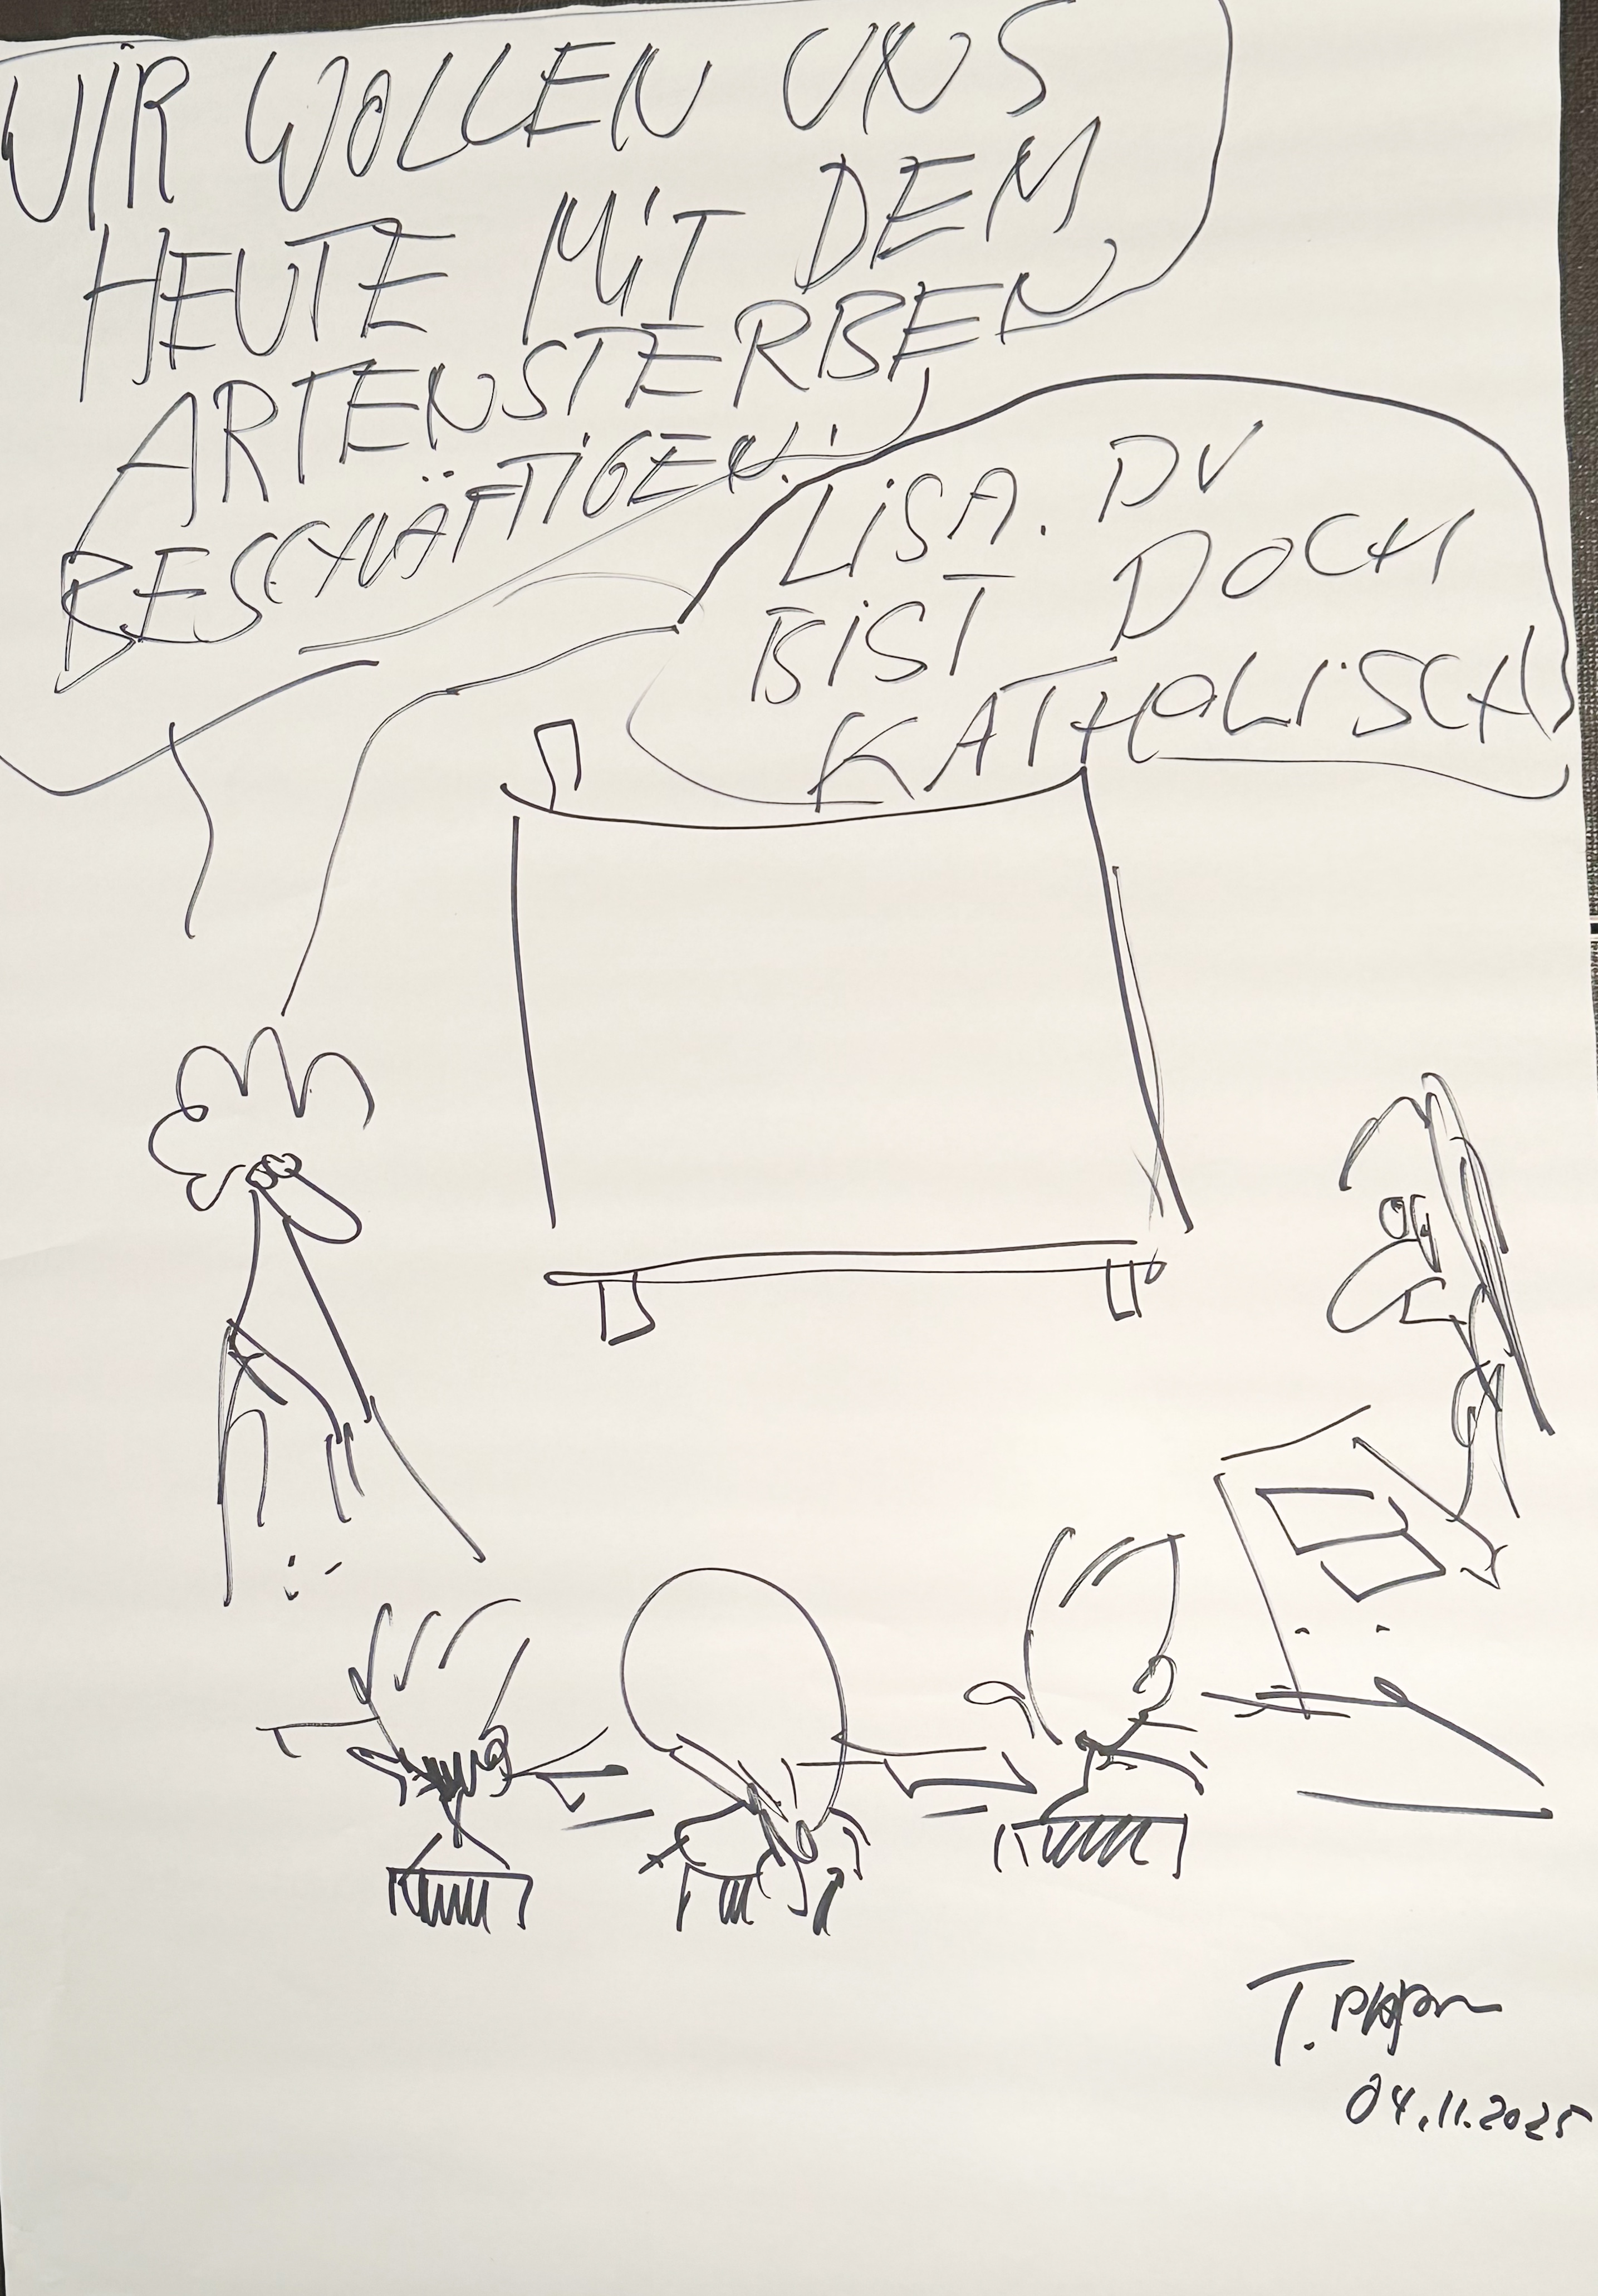 WIR WOLLEN UNS
HEUTE MIT DEM
ARTENSTERBEN
BESCHÄFTIGEN.
LISA. DU
BIST DOCH
KATHOLISCH
T.
04.11.2025